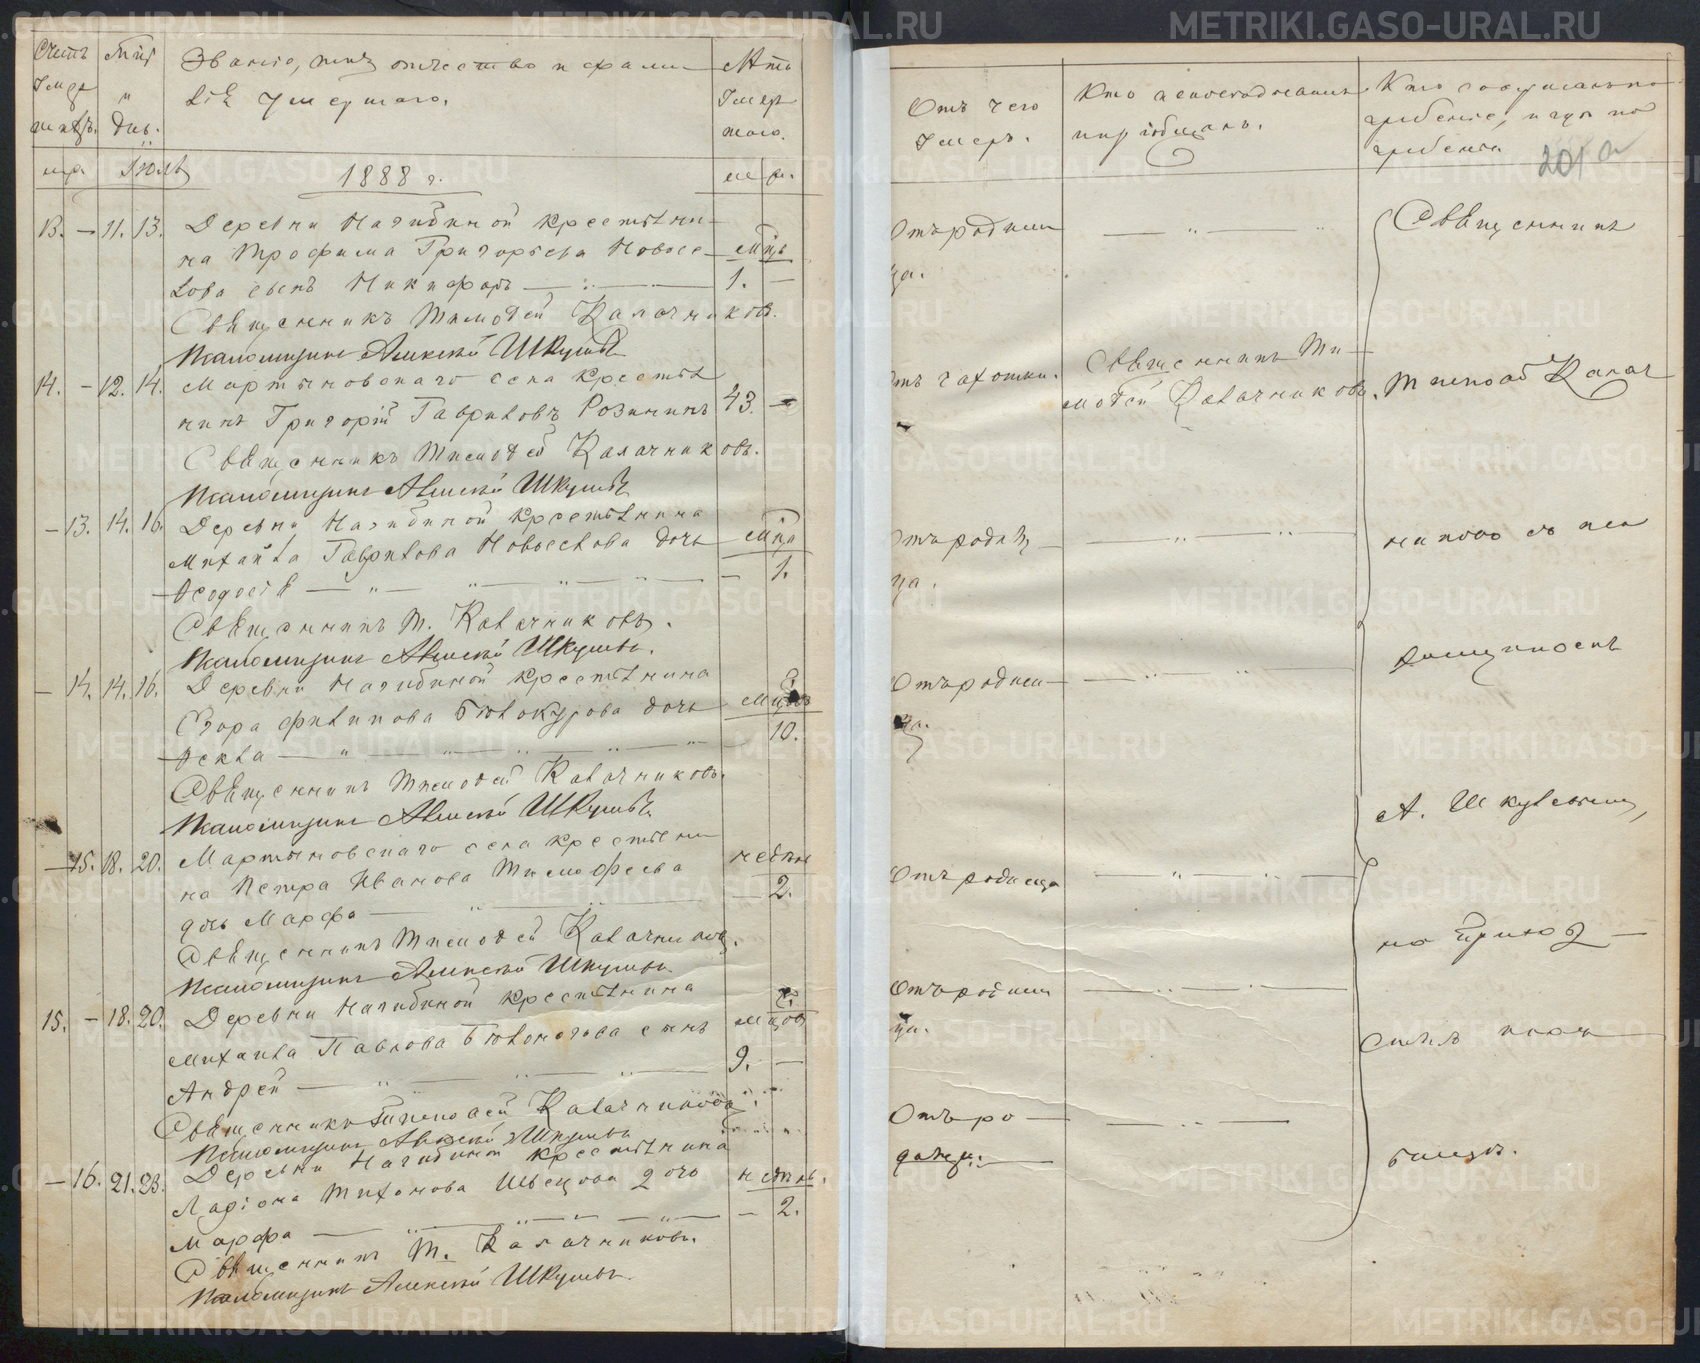 Счетъ
Умер
шихъ.
Мцъ
и
дни.
Званіе, имя, отчество и фами
лія умершаго.
Лѣта
Умер
шаго.
м.р.
Іюль
1888 г.
м.
ж.
13. — 11. 13.
Деревни Нагибиной крестьяни-
на Трофима Григорьева Новосе-
лова сынъ Никифоръ
мцъ
1. —
Священникъ Тимофей Калачниковъ.
Псаломщикъ Алексѣй
14. — 12. 14.
Мартыновскаго села крестья
нинъ Григорій Гавриловъ
43. —
Священникъ Тимофей Калачниковъ.
Псаломщикъ Алексѣй
— 13. 14. 16.
Деревни Нагибиной крестьянина
Михаила Гаврилова Новоселова дочь
мца
— 1.
Священникъ Т. Калачниковъ.
Псаломщикъ Алексѣй
— 14. 14. 16.
Деревни Нагибиной крестьянина
Егора Филипова Бѣлокурова дочь
Ѳекла
10.
Священникъ Тимофей Калачниковъ.
Псаломщикъ Алексѣй
— 15. 18. 20.
Мартыновскаго села крестьяни
на Петра Иванова Тимофеева
дочь Марфа
недѣль
— 2.
Священникъ Тимофей Калачниковъ.
Псаломщикъ Алексѣй
15. — 18. 20.
Деревни Нагибиной крестьянина
Михаила Павлова сынъ
Андрей
9. —
Священникъ Тимофей Калачниковъ
Псаломщикъ Алексѣй
— 16. 21. 23.
Деревни Нагибиной крестьянина
Ларіона Тихонова Швецова дочь
Марфа
недѣль.
— 2.
Священникъ Т. Калачниковъ.
Псаломщикъ Алексѣй
Отъ чего
Умеръ.
Кто исповѣдывалъ
и пріобщалъ.
Кто совершалъ по
гребеніе, и гдѣ по
гребены.
201
Отъ родим
ца.
Священникъ
отъ чахотки.
Священникъ Ти-
мофей Калачниковъ.
Тимофей Калач
Отъ родим
ца.
никовъ съ пса
Отъ родим
ца.
ломщикомъ
А.
Отъ родимца
на приход-
Отъ родим
ца.
скомъ клад
Отъ ро
димца.
бищѣ.
METRIKI.GASO-URAL.RU